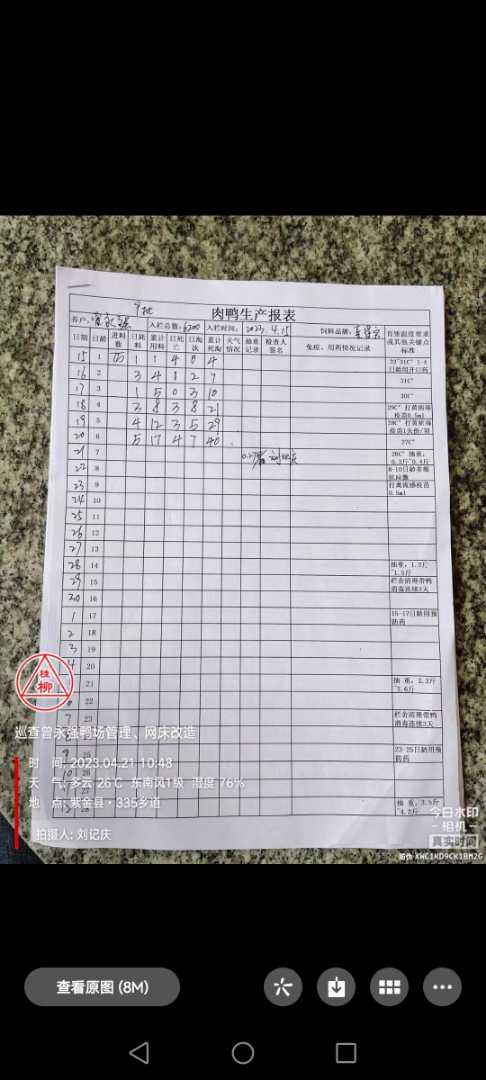 9批
肉鸭生产报表
养户: 曾永强 入栏总数: 6200 入栏时间: 2023.4.15 饲料品牌:
日期 日龄 进料数 日耗料 累计用料 日死亡 日淘汰 累计死淘 天气情况 抽重记录 检查人签名 免疫、用药情况记录 育雏温度要求或其他关键点标准
15 1 1 1 4 0 4 1-4日龄用开口药
16 2 3 4 3 2 9 31C°
17 3 1 5 0 3 10 30C°
18 4 3 8 3 8 21
19 5 4 12 3 5 29
20 6 5 17 4 7 40 27C°
21 7 刘记庆 26C° 抽重: 0.3斤~0.4斤
22 8
23 9 打禽流感疫苗
24 10
25 11
26 12
27 13
28 14 抽重: 1.2斤~1.5斤
29 15 栏舍消毒带鸭消毒连续3天
30 16
1 17 15-17日龄用预防药
2 18
3 19
4 20
21 抽重: 2.2斤~2.6斤
22
7 23 栏舍消毒带鸭消毒连续3天
9 25 23-25日龄用预防药
10 26
抽重: 3.5斤~4.2斤
桂柳
巡查曾永强鸭场管理、网床改造
时 间: 2023.04.21 10:48
天 气: 多云 26℃ 东南风1级 湿度 76%
地 点: 紫金县·335乡道
拍摄人: 刘记庆
今日水印
相机
真实时间
防伪 XWC1KD9CK1BM2G
查看原图 (8M)